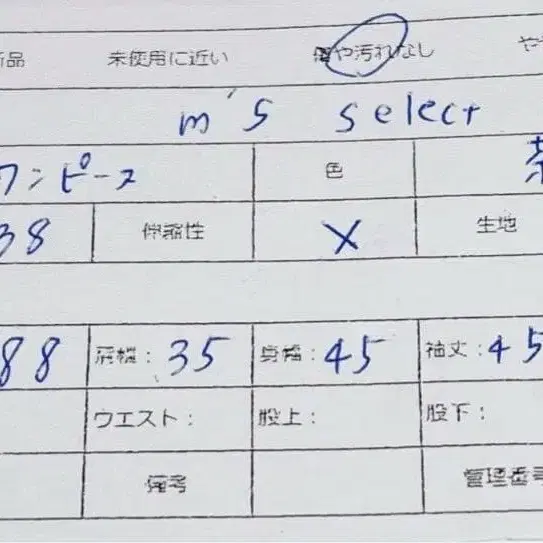 新品 未使用に近い 傷や汚れなし やや
m's select
ワンピース 色 茶
38 伸縮性 X 生地
88 肩幅: 35 身幅: 45 袖丈: 45
ウエスト: 股上: 股下:
備考 管理番号